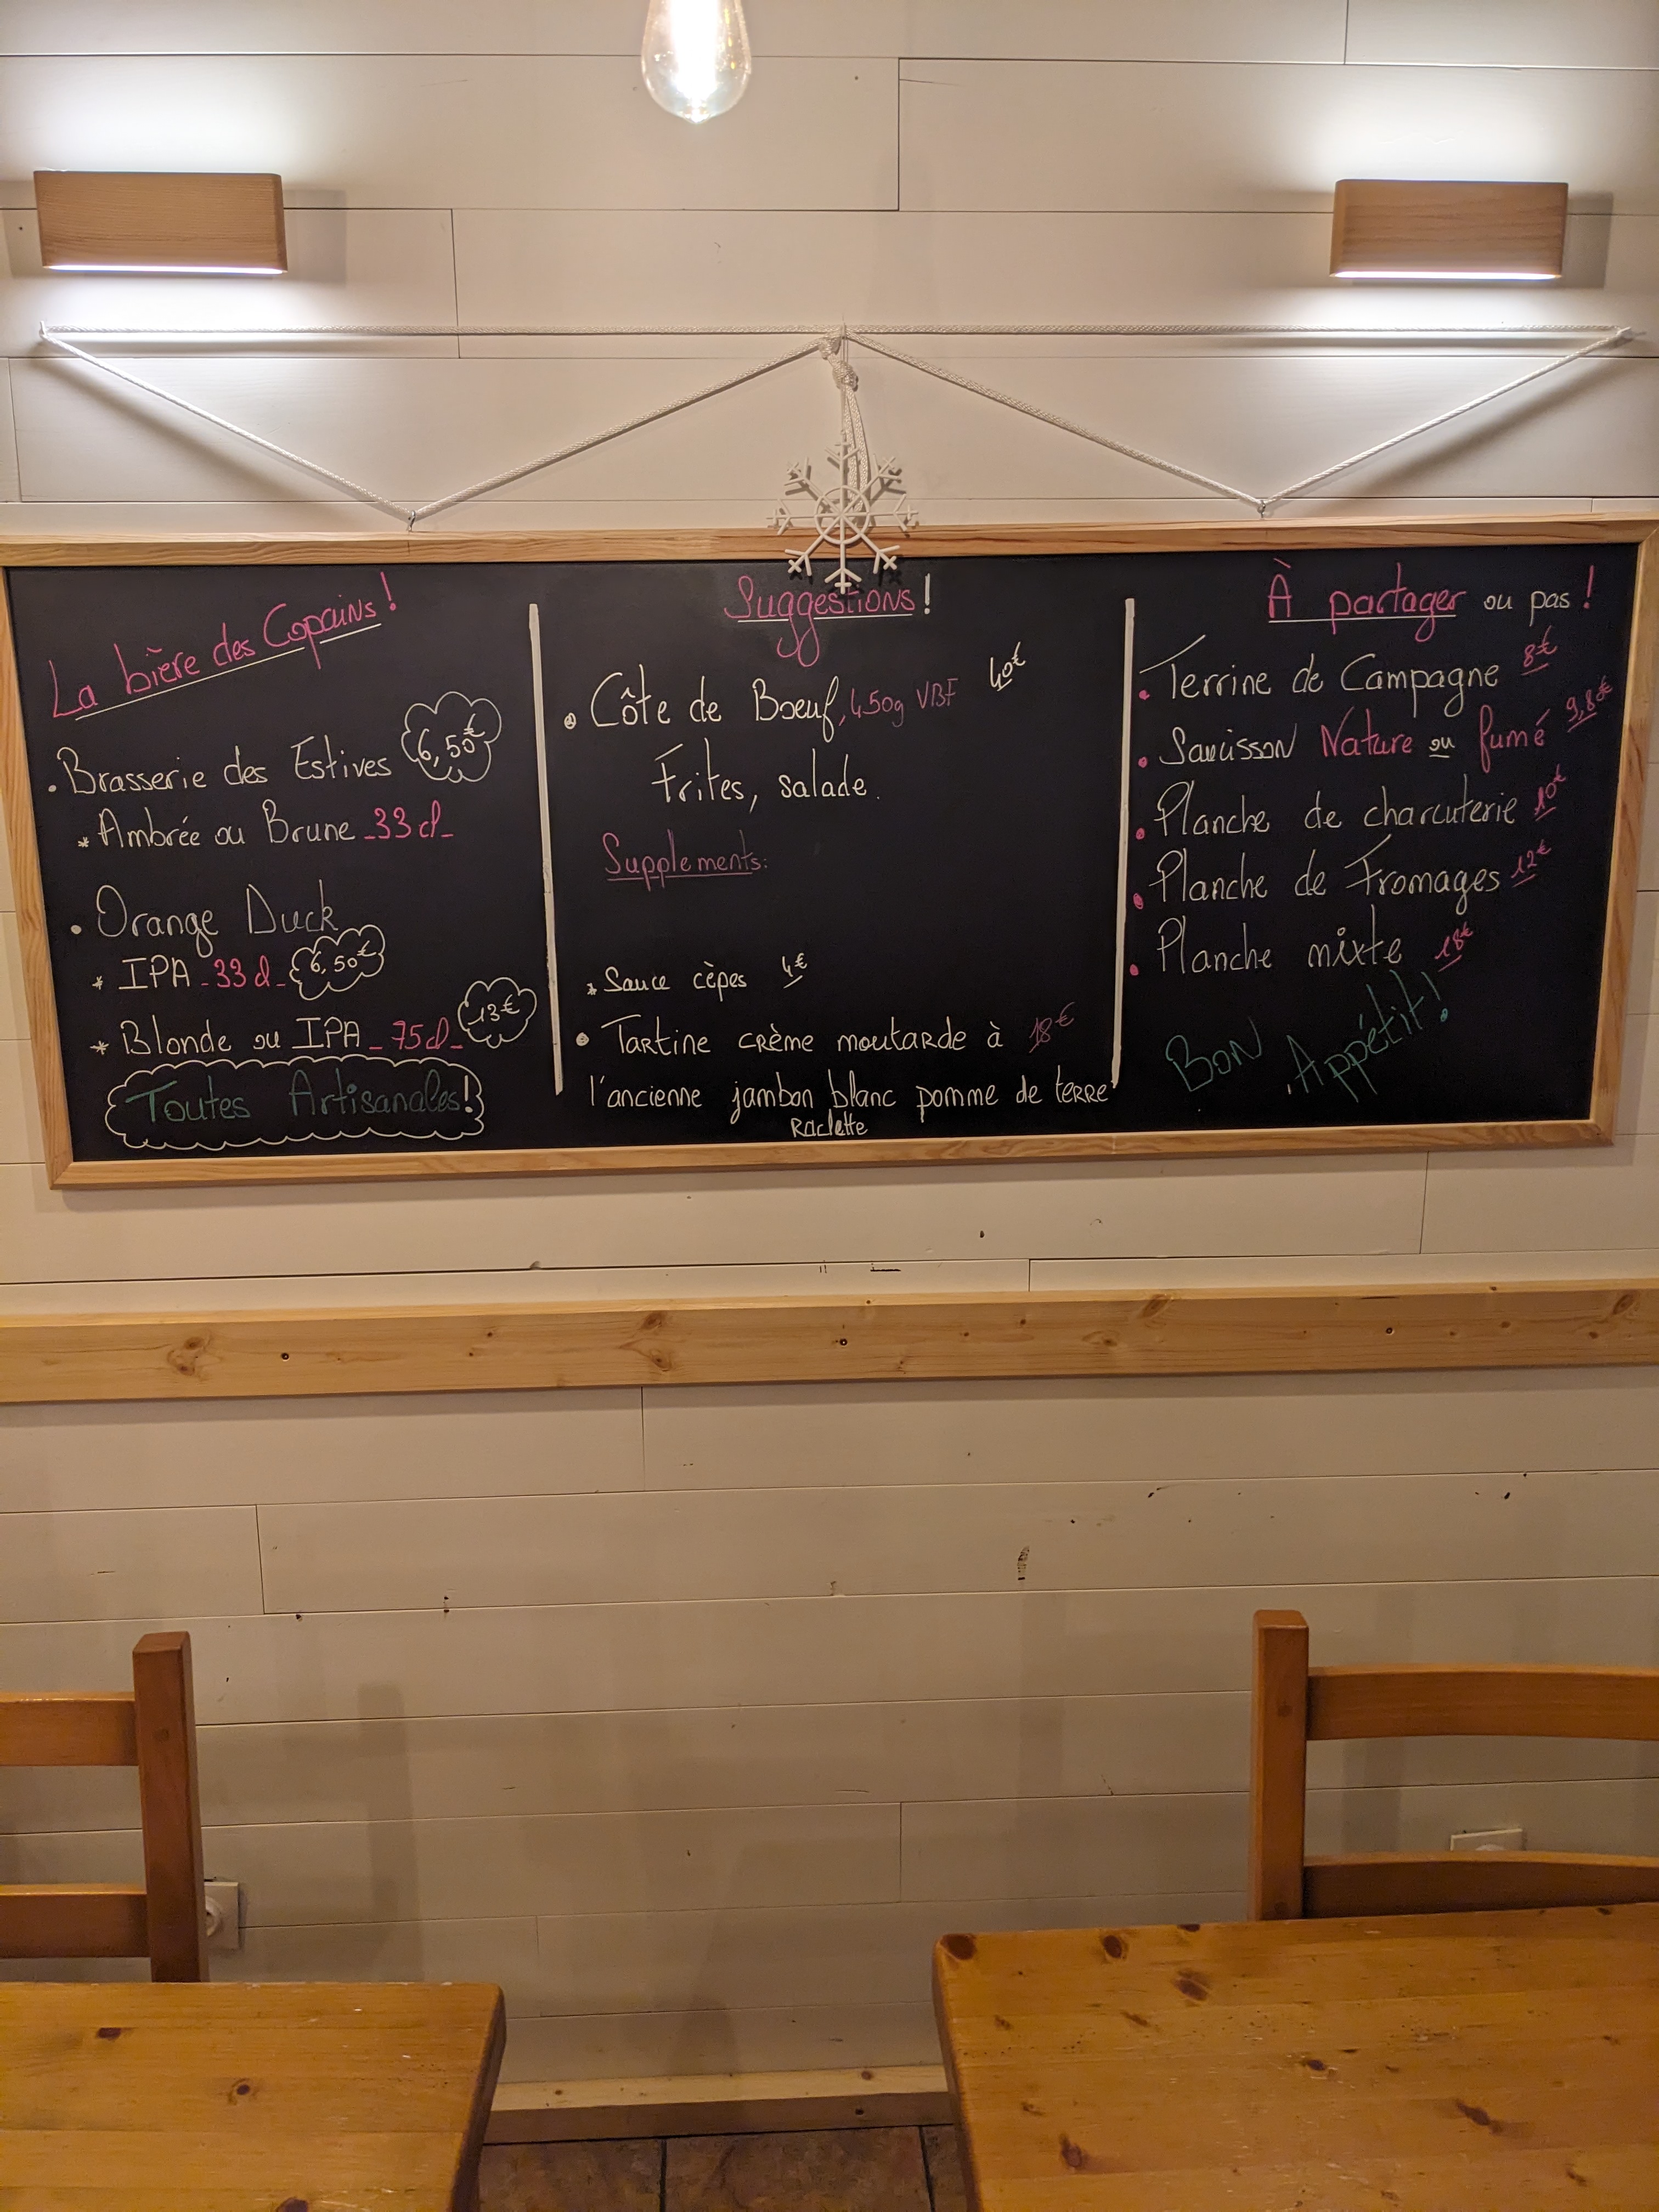 La bière des Copains !
• Brasserie des Estives 6,50€
* Ambrée ou Brune _33 cl_
• Orange Duck
* IPA _33 cl_ 6,50€
* Blonde ou IPA _75 cl_ 13€
Toutes Artisanales !
Suggestions !
• Côte de Boeuf, 450g VBF 40€
Frites, salade.
Supplements:
* Sauce cèpes 4€
• Tartine crème moutarde à 18€
l'ancienne jambon blanc pomme de terre
Raclette
À partager ou pas !
• Terrine de Campagne 8€
• Saucisson Nature ou fumé 9,8€
• Planche de charcuterie 10€
• Planche de Fromages 12€
• Planche mixte 18€
Bon Appétit !